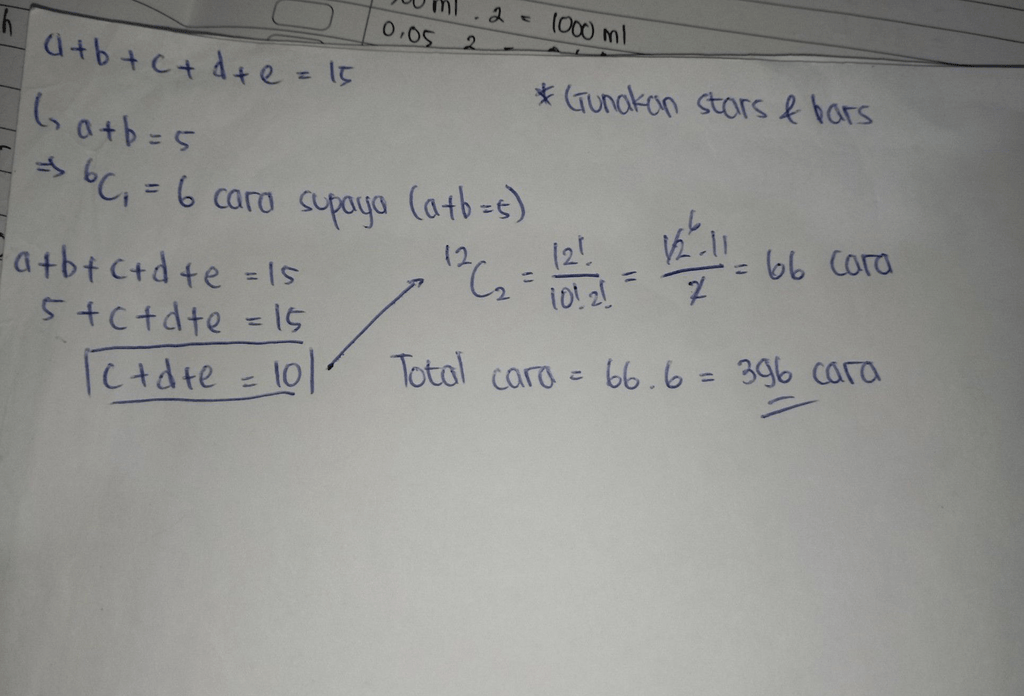 h
ml . 2 = 1000 ml
0,05 2
a+b+c+d+e = 15
* Gunakan stars & bars
↳ a+b = 5
⇒ ⁶C₁ = 6 cara supaya (a+b=5)
a+b+c+d+e = 15
¹²C₂ = 12!/10!2! = 12⁶.11/2 = 66 cara
5+c+d+e = 15
c+d+e = 10
Total cara = 66.6 = 396 cara